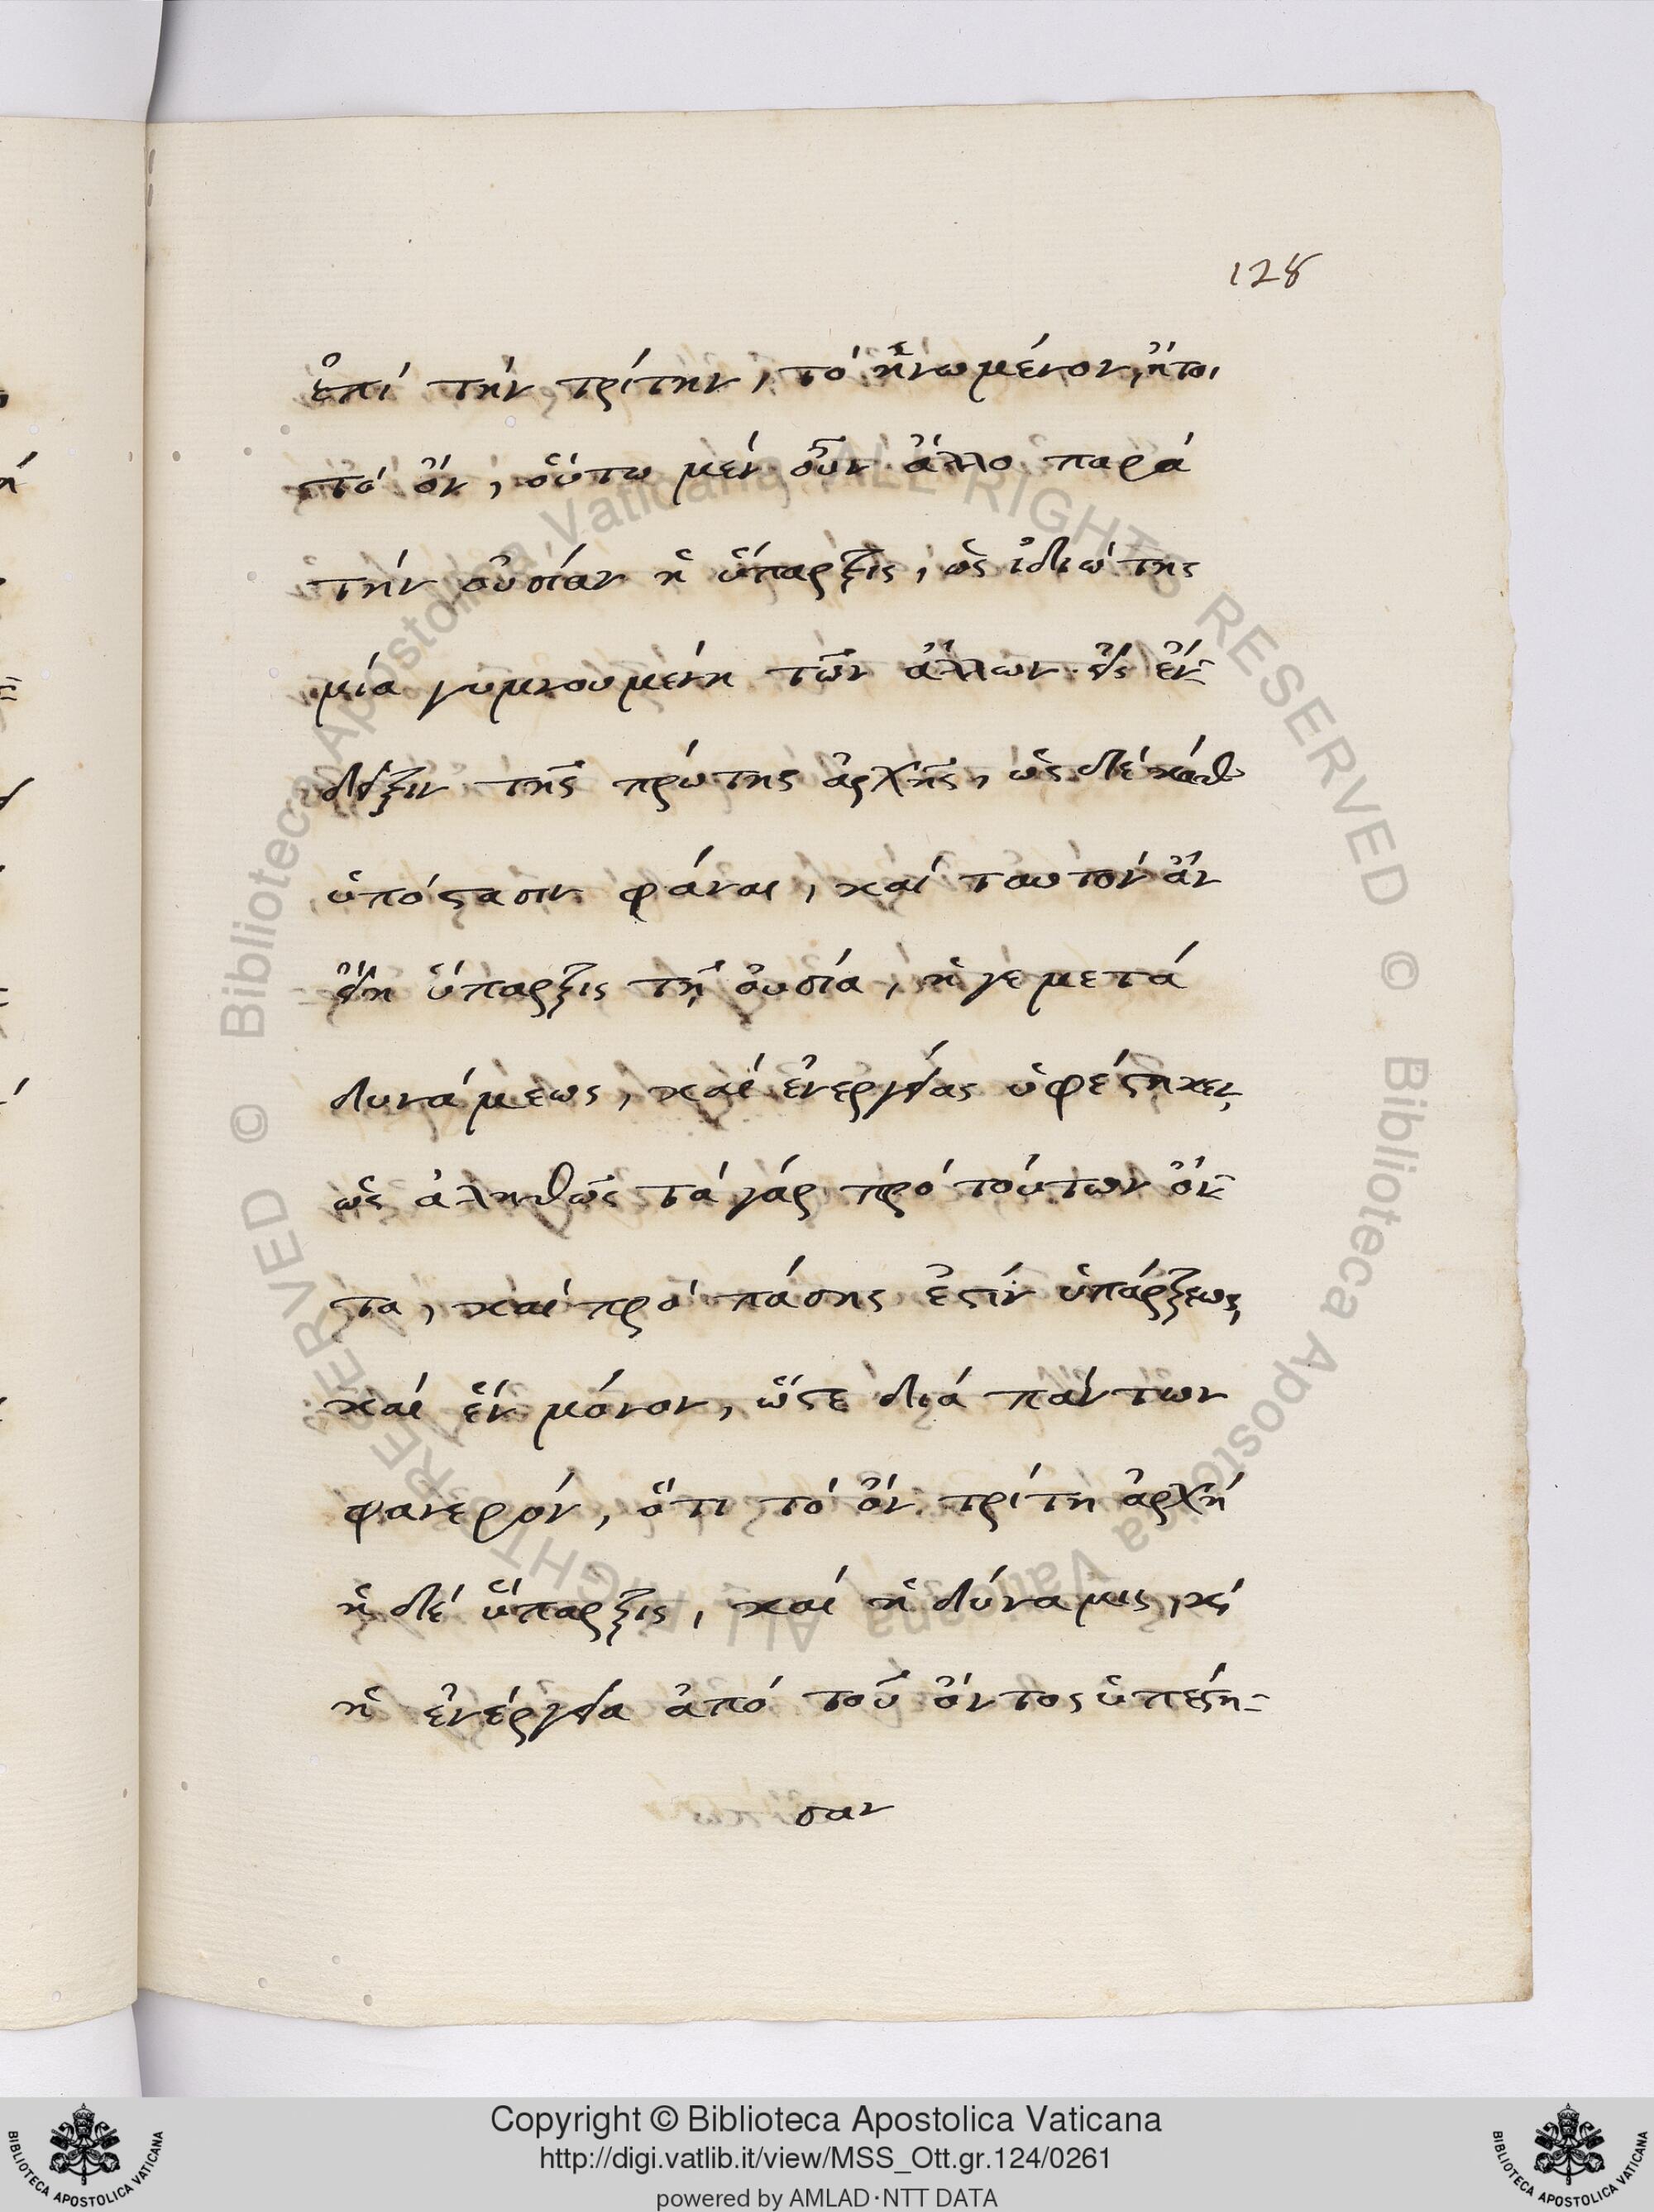 128
ἐπί τήν τρίτην, τό ἡνωμένον, ἤτοι
τό ὄν, οὕτω μέν οὖν ἄλλο παρά
τήν οὐσίαν ἡ ὕπαρξις, ὡς ἰδιώτης
μία γυμνουμένη τῶν ἄλλων εἰς ἔν-
δειξιν τῆς πρώτης ἀρχῆς, ὡς δέ καθ
ὑπόστασιν φάναι, καί ταυτόν ἄν
εἴη ὕπαρξις τῇ οὐσία, ἡ γε μετά
δυνάμεως, καί ἐνεργείας ὑφέστηκεν,
ὡς ἀληθῶς τά γάρ πρό τούτων ὄν-
τα, καί πρό πάσης ἐστίν ὑπάρξεως,
καί ἕν μόνον, ὥστε διά πάντων
φανερόν, ὅτι τό ὄν τρίτη ἀρχή
ἡ δέ ὕπαρξις, καί ἡ δύναμις, κ,
ἡ ἐνέργεια ἀπό τοῦ ὄντος ὑπέστη-
σαν
© Biblioteca Apostolica Vaticana ALL RIGHTS RESERVED © Biblioteca Apostolica Vaticana ALL RIGHTS RESERVED
Copyright © Biblioteca Apostolica Vaticana
http://digi.vatlib.it/view/MSS_Ott.gr.124/0261
powered by AMLAD·NTT DATA
BIBLIOTECA APOSTOLICA VATICANA
BIBLIOTECA APOSTOLICA VATICANA